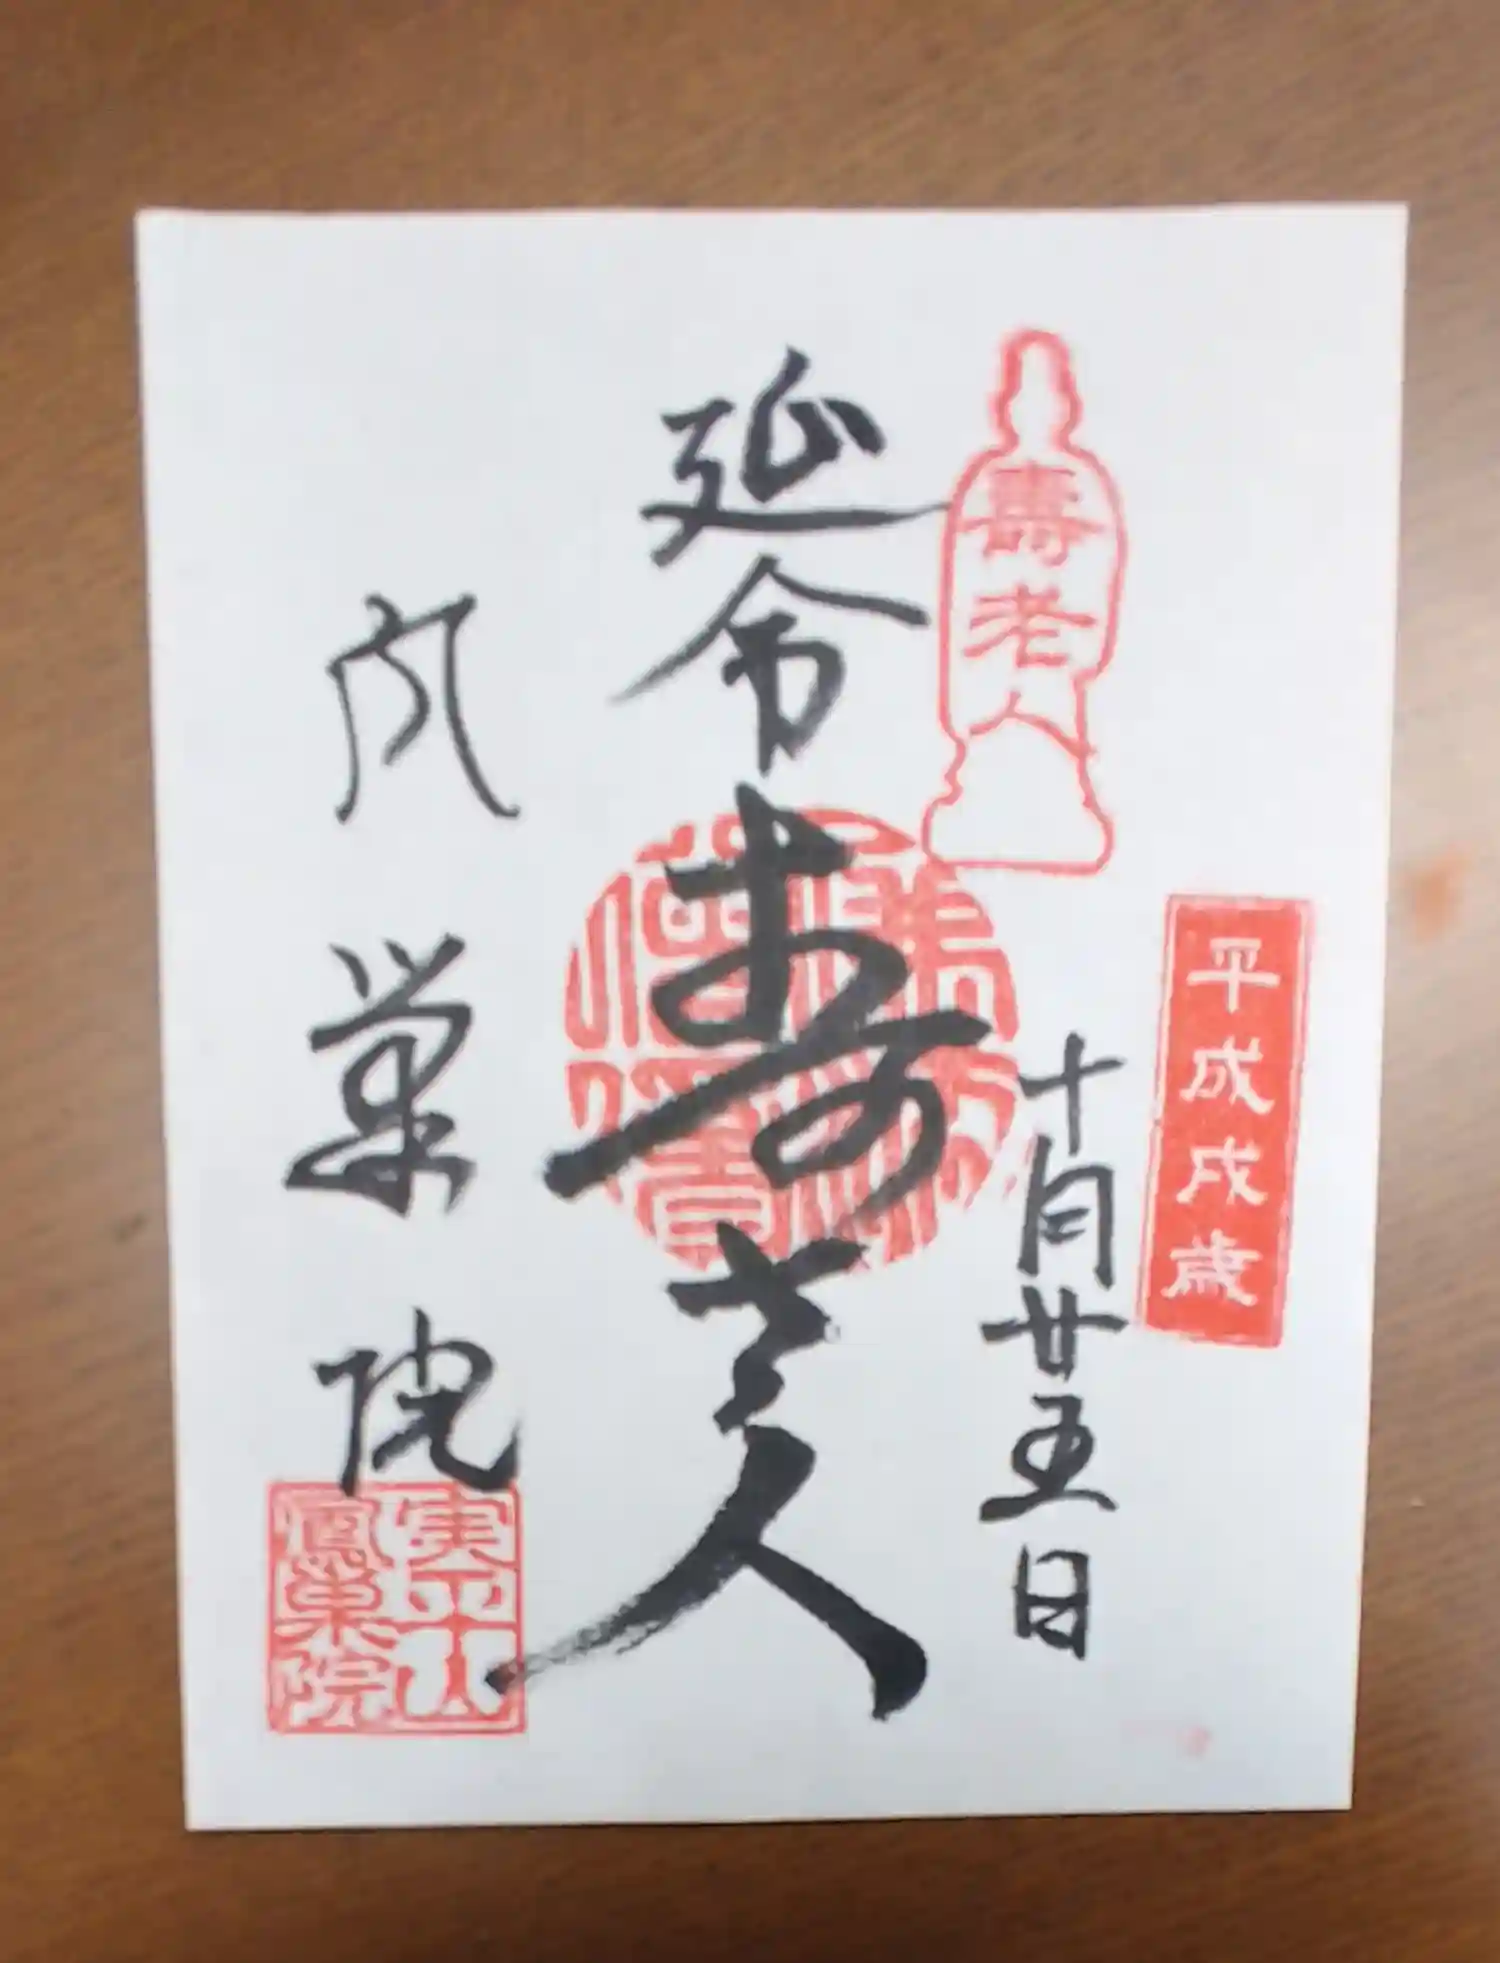 平成戌歳
十月廿五日
壽老人
延命
寿老人
鳳巣院
鳳巣院